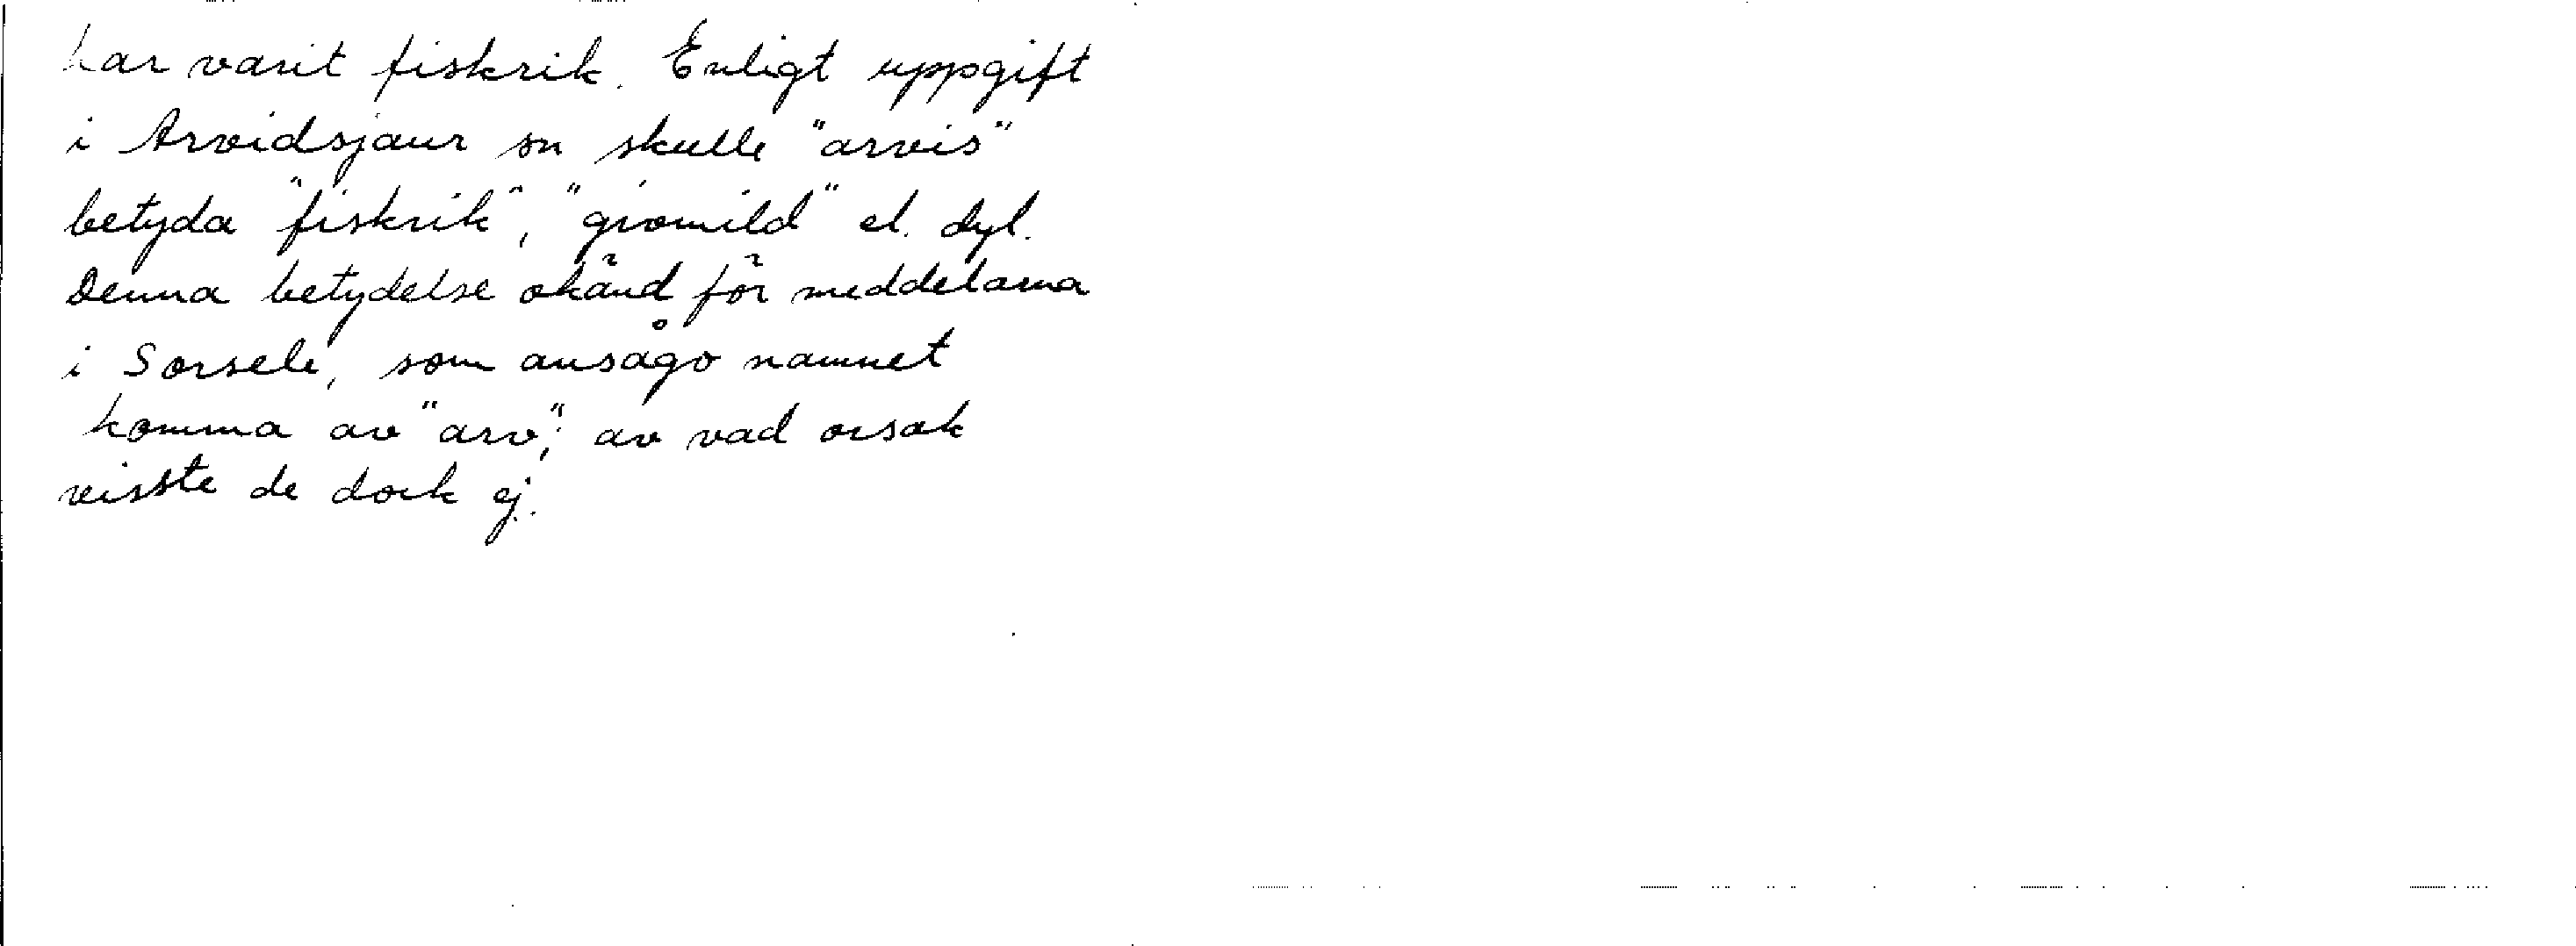 har varit fiskrik. Enligt uppgift
i Arvidsjaur sn skulle "arvis"
betyda "fiskrik", "givmild" el. dyl.
Denna betydelse okänd för meddelarna
i Sorsele, som ansågo namnet
komma av "arv", av vad orsak
visste de dock ej.